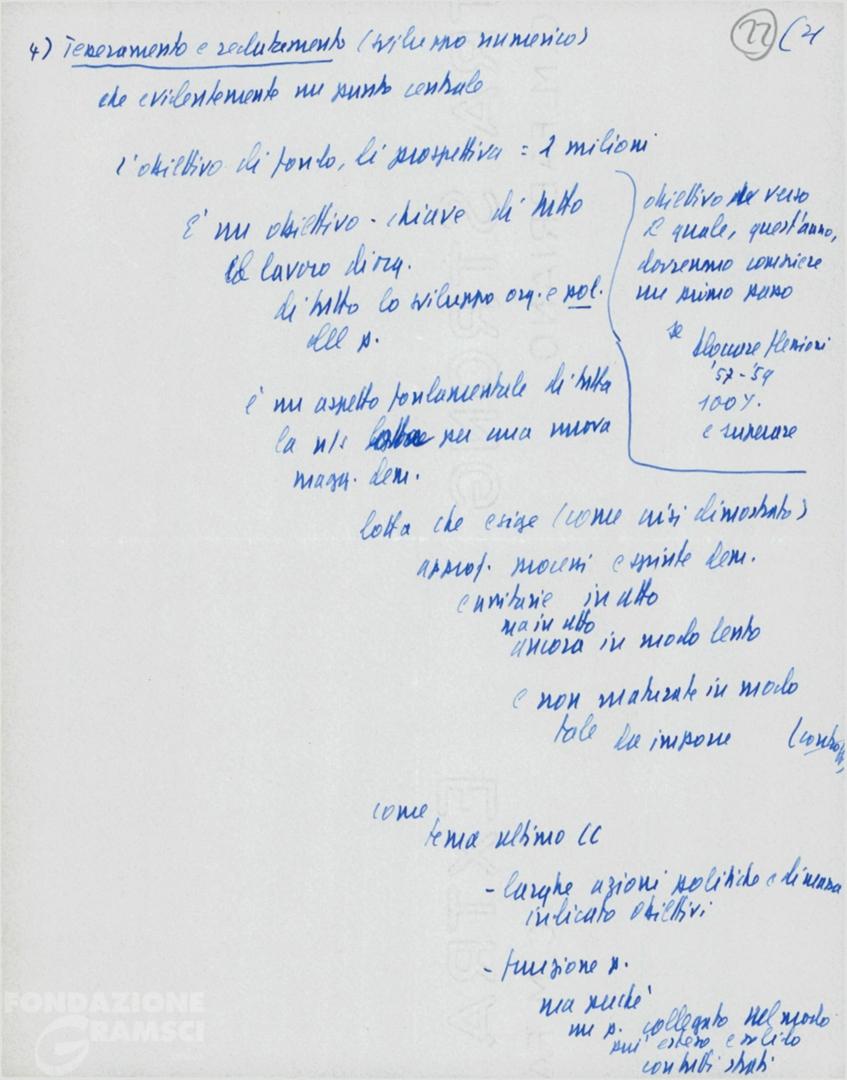 22 (4
4) Tesseramento e reclutamento (sviluppo numerico)
che evidentemente un punto centrale
L'obiettivo di fondo, di prospettiva = 2 milioni
È un obiettivo-chiave di tutto
il lavoro di org.
di tutto lo sviluppo org. e pol.
del p.
obiettivo verso
il quale, quest'anno,
dovremmo compiere
un primo passo
se bloccare flessioni
'57-'59
100%.
e superare
è un aspetto fondamentale di tutta
la n/s lotta per una nuova
magg. dem.
lotta che esige (come crisi dimostrato)
approf. processi e spinte dem.
e unitarie in atto
ma in atto
ancora in modo lento
e non maturate in modo
tale da imporre
come
tema ultimo CC
- larghe azioni politiche e di massa
indicato obiettivi
- funzione p.
ma perché
un p. collegato nel modo
più esteso e solido
con tutti strati
FONDAZIONE
GRAMSCI